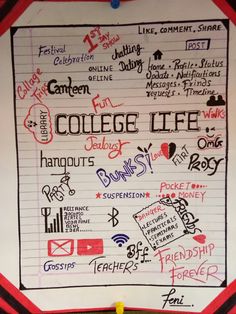 LIKE, COMMENT, SHARE
POST
1ST DAY SHOW
Festival
Celebration
chatting
Dating
ONLINE
OFFLINE
Home • Profile • Status
Update • Notifications
Messages • Frinds
requests • Timeline
College
Trip
Canteen
Fun
LIBRARY
COLLEGE LIFE
Jealousy
OMG
hangouts
BUNKS!
LOVE
PROXY
PARTY
*SUSPENSION*
POCKET
MONEY
RELIANCE
AIRCEL
DANGER
LECTURES
PRACTICALS
SEMINARS
EXAMS
Friends
GOSSIPS
TEACHERS
Bff
FRIENDSHIP
FOREVER
Feni